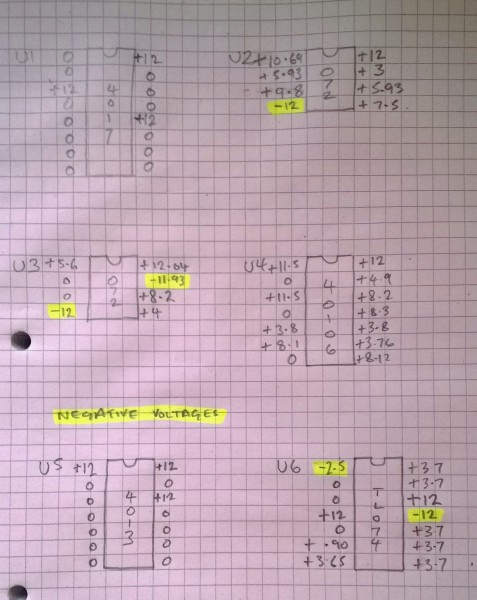 U1 0 +12
0 0
+12 4 0
0 0 0
0 1 +12
0 7 0
0 0
0 0
U2 +10.69 +12
+5.93 0 +3
+9.8 7 +5.93
-12 2 +7.5.
U3 +5.6 +12.04
0 0 -11.93
0 7 +8.2
-12 2 +4
U4 +11.5 +12
0 4 +4.9
+11.5 0 +8.2
0 1 +8.3
+3.8 0 +3.8
+8.1 6 +3.76
0 +8.12
NEGATIVE VOLTAGES
U5 +12 +12
0 0
0 4 +12
0 0 0
0 1 0
0 3 0
0 0
U6 -2.5 +3.7
0 T +3.7
0 L +12
+12 0 -12
0 7 +3.7
+.90 4 +3.7
+3.65 +3.7